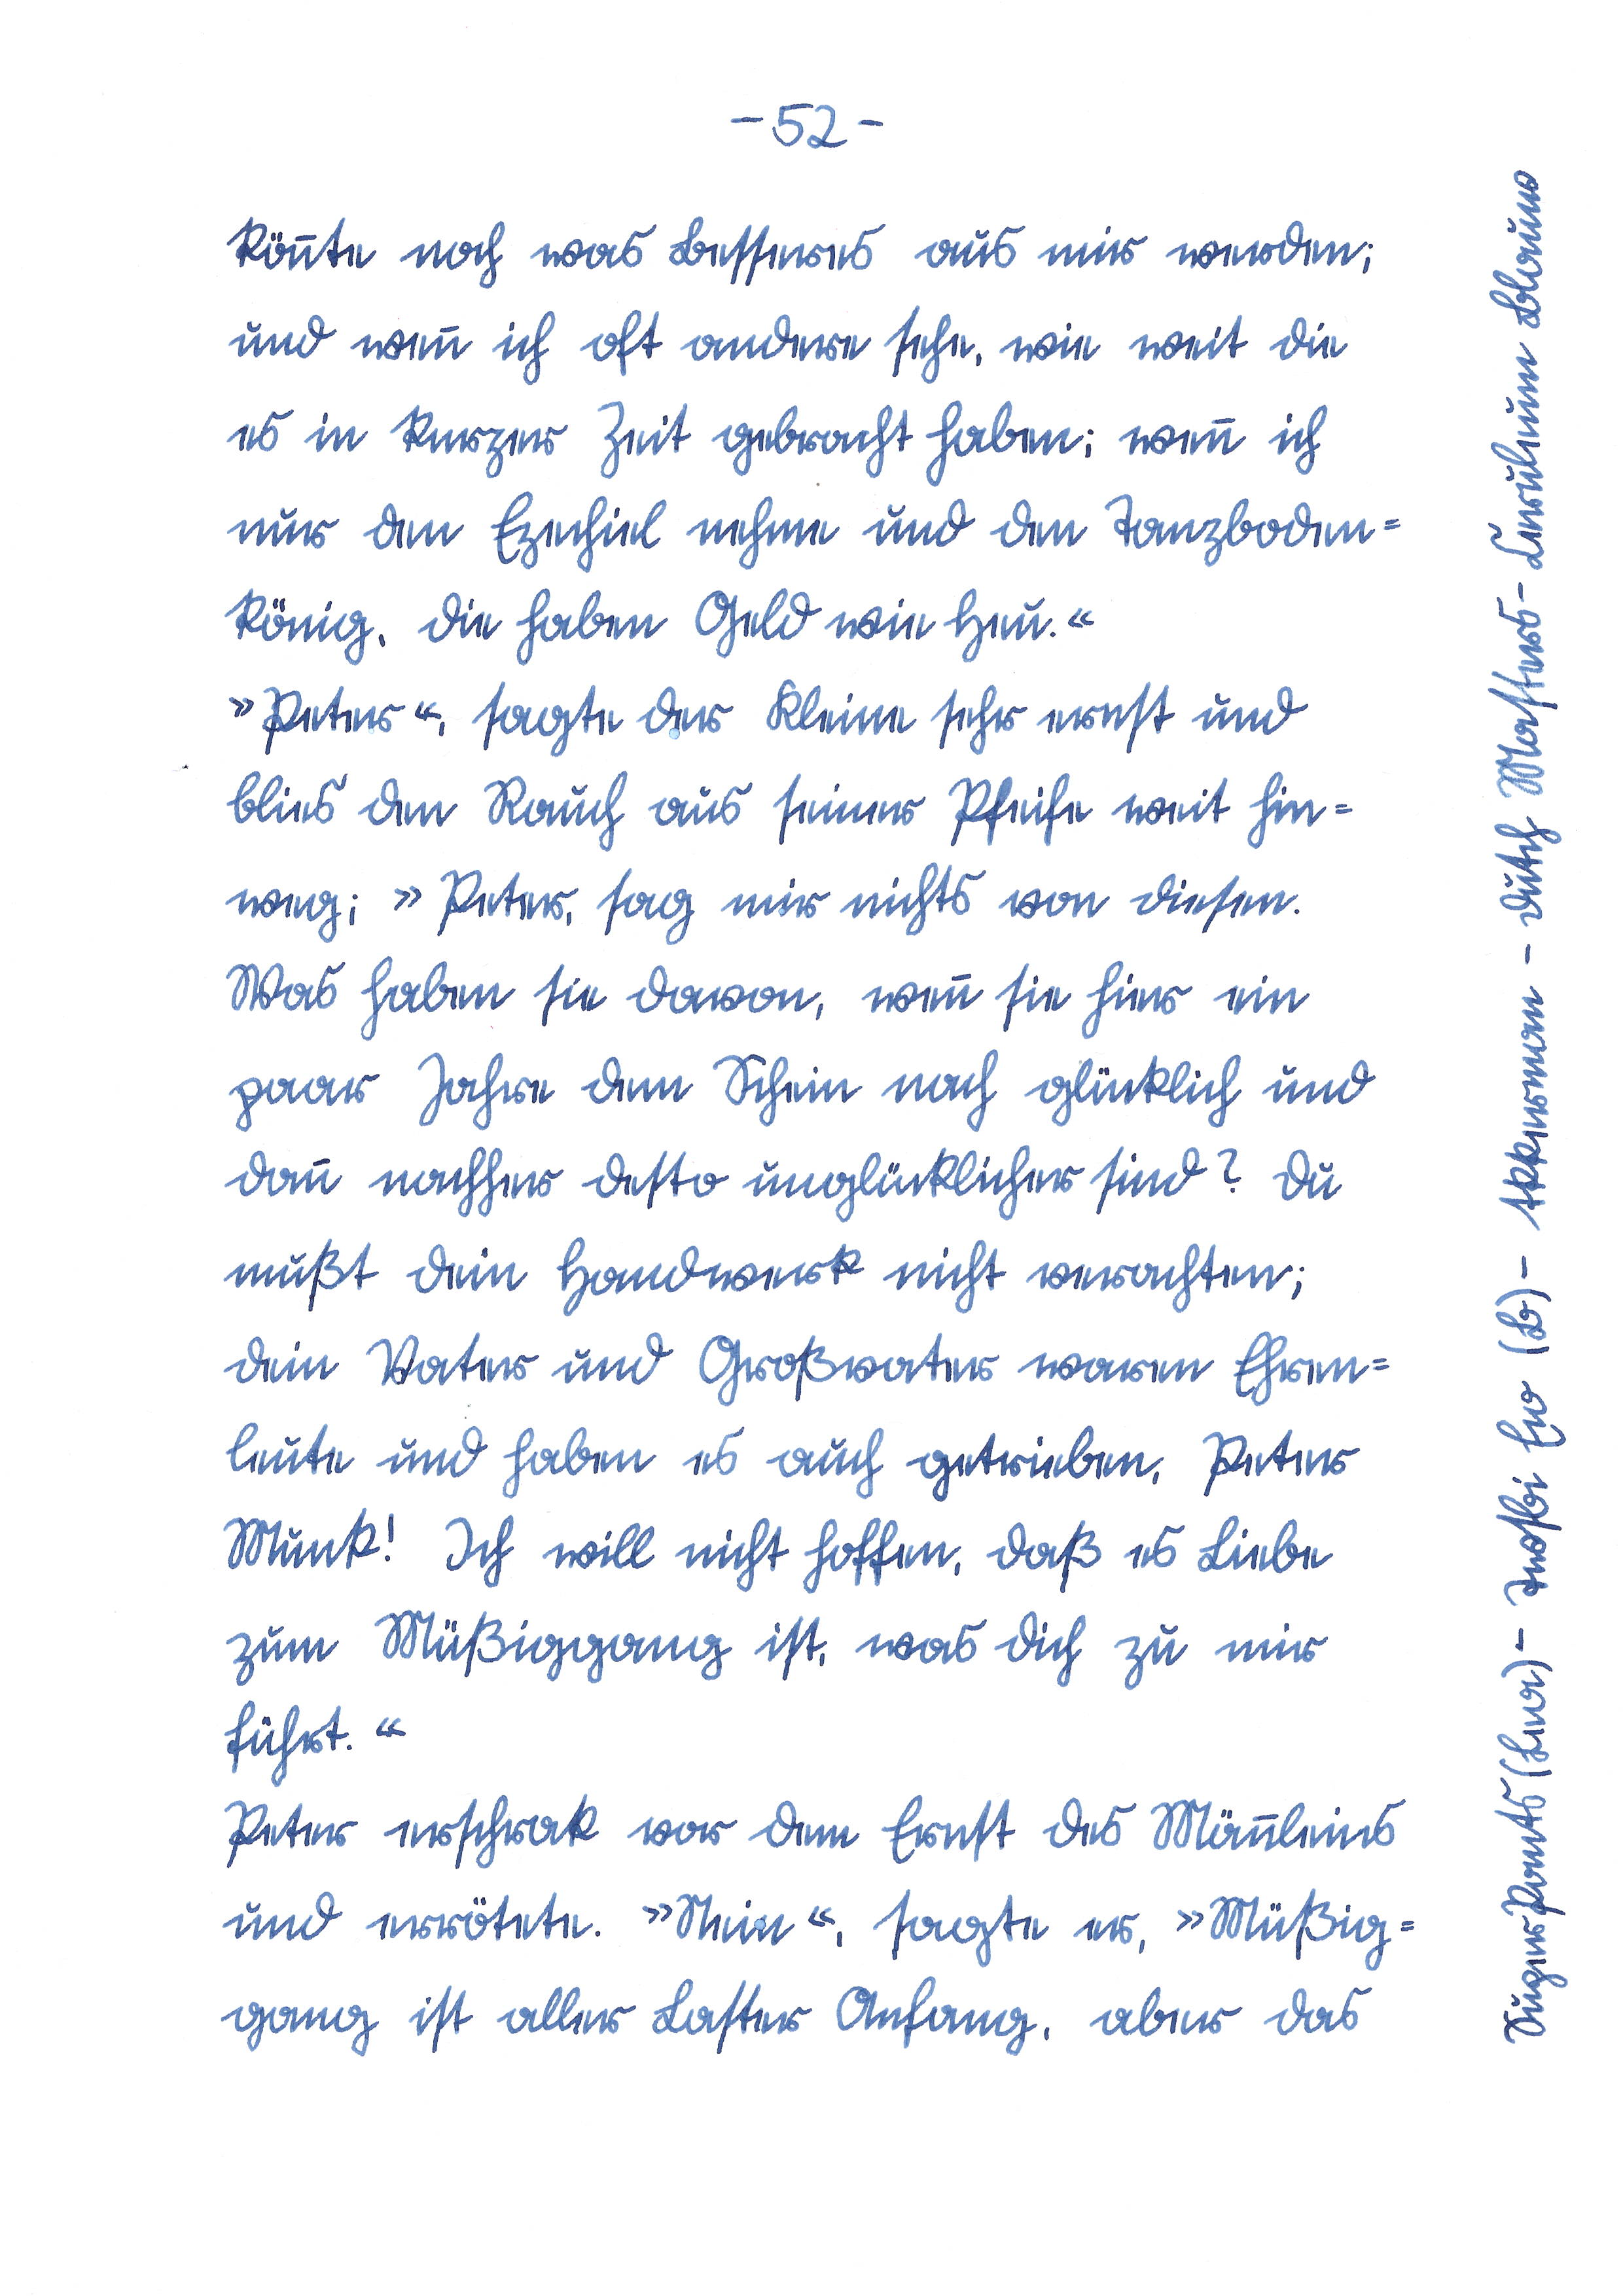 -52-
kön̄te noch was Besseres aus mir werden;
und wen̄ ich oft andere sehe, wie weit die
es in kurzer Zeit gebracht haben; wen̄ ich
nur den Ezechiel nehme und den Tanzboden=
könig, die haben Geld wie Heu.«
»Peter«, sagte der Kleine sehr ernst und
blies den Rauch aus seiner Pfeife weit hin=
weg; »Peter, sag mir nichts von diesen.
Was haben sie davon, wen̄ sie hier ein
paar Jahre dem Schein nach glücklich und
dan̄ nachher desto unglücklicher sind? Du
mußt dein Handwerk nicht verachten;
dein Vater und Großvater waren Ehren=
leute und haben es auch getrieben, Peter
Munk! Ich will nicht hoffen, daß es Liebe
zum Müßiggang ist, was dich zu mir
führt.«
Peter erschrak vor dem Ernst des Män̄leins
und errötete. »Nein«, sagte er, »Müßig=
gang ist aller Laster Anfang, aber das
Twsbi Eco (B) - Akkerman - Dutch Masters - Ceruleum Blauw